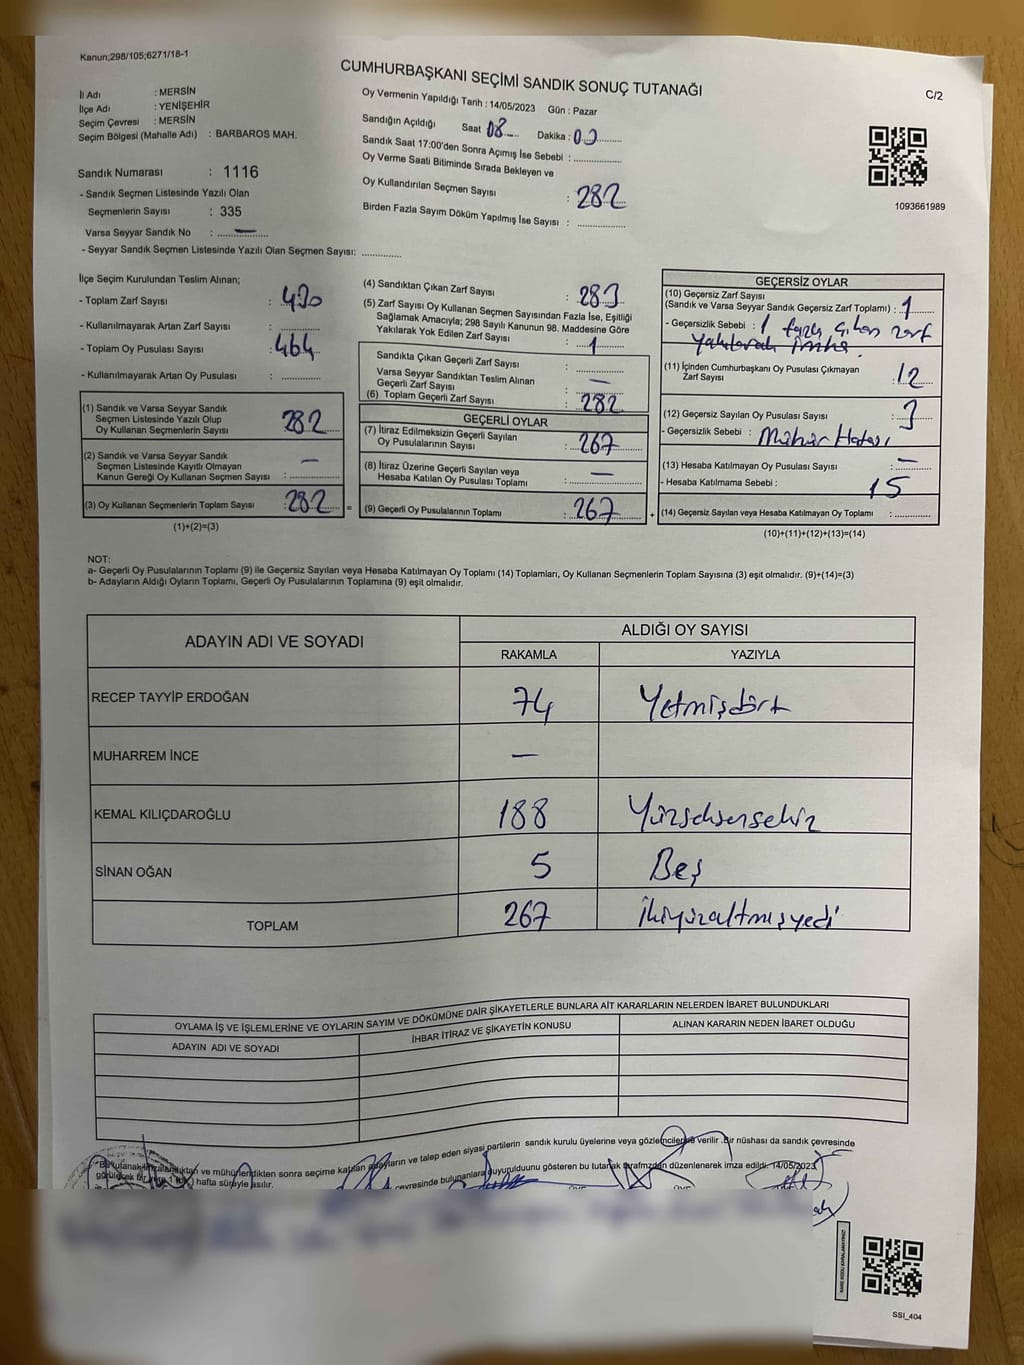 Kanun;298/105;6271/18-1
CUMHURBAŞKANI SEÇİMİ SANDIK SONUÇ TUTANAĞI
C/2
İl Adı : MERSİN
İlçe Adı : YENİŞEHİR
Seçim Çevresi : MERSİN
Seçim Bölgesi (Mahalle Adı) : BARBAROS MAH.
Sandık Numarası : 1116
- Sandık Seçmen Listesinde Yazılı Olan
Seçmenlerin Sayısı : 335
Varsa Seyyar Sandık No : —
- Seyyar Sandık Seçmen Listesinde Yazılı Olan Seçmen Sayısı: ..............
Oy Vermenin Yapıldığı Tarih : 14/05/2023 Gün : Pazar
Sandığın Açıldığı Saat 08 Dakika : 00
Sandık Saat 17:00'den Sonra Açımış İse Sebebi : ..............
Oy Verme Saati Bitiminde Sırada Bekleyen ve
Oy Kullandırılan Seçmen Sayısı : 282
Birden Fazla Sayım Döküm Yapılmış İse Sayısı : ..............
1093661989
İlçe Seçim Kurulundan Teslim Alınan;
- Toplam Zarf Sayısı :
- Kullanılmayarak Artan Zarf Sayısı : ..............
- Toplam Oy Pusulası Sayısı : 464
- Kullanılmayarak Artan Oy Pusulası : ..............
(1) Sandık ve Varsa Seyyar Sandık
Seçmen Listesinde Yazılı Olup
Oy Kullanan Seçmenlerin Sayısı : 282
(2) Sandık ve Varsa Seyyar Sandık
Seçmen Listesinde Kayıtlı Olmayan
Kanun Gereği Oy Kullanan Seçmen Sayısı : —
(3) Oy Kullanan Seçmenlerin Toplam Sayısı : 282 =
(1)+(2)=(3)
(4) Sandıktan Çıkan Zarf Sayısı : 283
(5) Zarf Sayısı Oy Kullanan Seçmen Sayısından Fazla İse, Eşitliği
Sağlamak Amacıyla; 298 Sayılı Kanunun 98. Maddesine Göre
Yakılarak Yok Edilen Zarf Sayısı : 1
Sandıkta Çıkan Geçerli Zarf Sayısı : ..............
Varsa Seyyar Sandıktan Teslim Alınan
Geçerli Zarf Sayısı : —
(6) Toplam Geçerli Zarf Sayısı : 282
GEÇERLİ OYLAR
(7) İtiraz Edilmeksizin Geçerli Sayılan
Oy Pusulalarının Sayısı : 267
(8) İtiraz Üzerine Geçerli Sayılan veya
Hesaba Katılan Oy Pusulası Toplamı : —
(9) Geçerli Oy Pusulalarının Toplamı : 267 +
GEÇERSİZ OYLAR
(10) Geçersiz Zarf Sayısı
(Sandık ve Varsa Seyyar Sandık Geçersiz Zarf Toplamı) : 1
- Geçersizlik Sebebi : 1 fazla çıkan zarf
yakılarak imha.
(11) İçinden Cumhurbaşkanı Oy Pusulası Çıkmayan
Zarf Sayısı : 12
(12) Geçersiz Sayılan Oy Pusulası Sayısı : 3
- Geçersizlik Sebebi : Mühür Hatası
(13) Hesaba Katılmayan Oy Pusulası Sayısı : —
- Hesaba Katılmama Sebebi :
15
(14) Geçersiz Sayılan veya Hesaba Katılmayan Oy Toplamı : ..............
(10)+(11)+(12)+(13)=(14)
NOT:
a- Geçerli Oy Pusulalarının Toplamı (9) ile Geçersiz Sayılan veya Hesaba Katılmayan Oy Toplamı (14) Toplamları, Oy Kullanan Seçmenlerin Toplam Sayısına (3) eşit olmalıdır. (9)+(14)=(3)
b- Adayların Aldığı Oyların Toplamı, Geçerli Oy Pusulalarının Toplamına (9) eşit olmalıdır.
ADAYIN ADI VE SOYADI ALDIĞI OY SAYISI
RAKAMLA YAZIYLA
RECEP TAYYİP ERDOĞAN 74 Yetmişdört
MUHARREM İNCE —
KEMAL KILIÇDAROĞLU 188 Yüzseksensekiz
SİNAN OĞAN 5 Beş
TOPLAM 267 İkiyüzaltmışyedi
OYLAMA İŞ VE İŞLEMLERİNE VE OYLARIN SAYIM VE DÖKÜMÜNE DAİR ŞİKAYETLERLE BUNLARA AİT KARARLARIN NELERDEN İBARET BULUNDUKLARI
ADAYIN ADI VE SOYADI İHBAR İTİRAZ VE ŞİKAYETİN KONUSU ALINAN KARARIN NEDEN İBARET OLDUĞU
ve mühürlendikten sonra seçime katılan adayların ve talep eden siyasi partilerin sandık kurulu üyelerine veya gözlemcilerine verilir .Bir nüshası da sandık çevresinde
hafta süreyle asılır. çevresinde bulunanlara duyurulduunu gösteren bu tutanak tarafmzdan düzenlenerek imza edildi. 14/05/2023
SSI_404